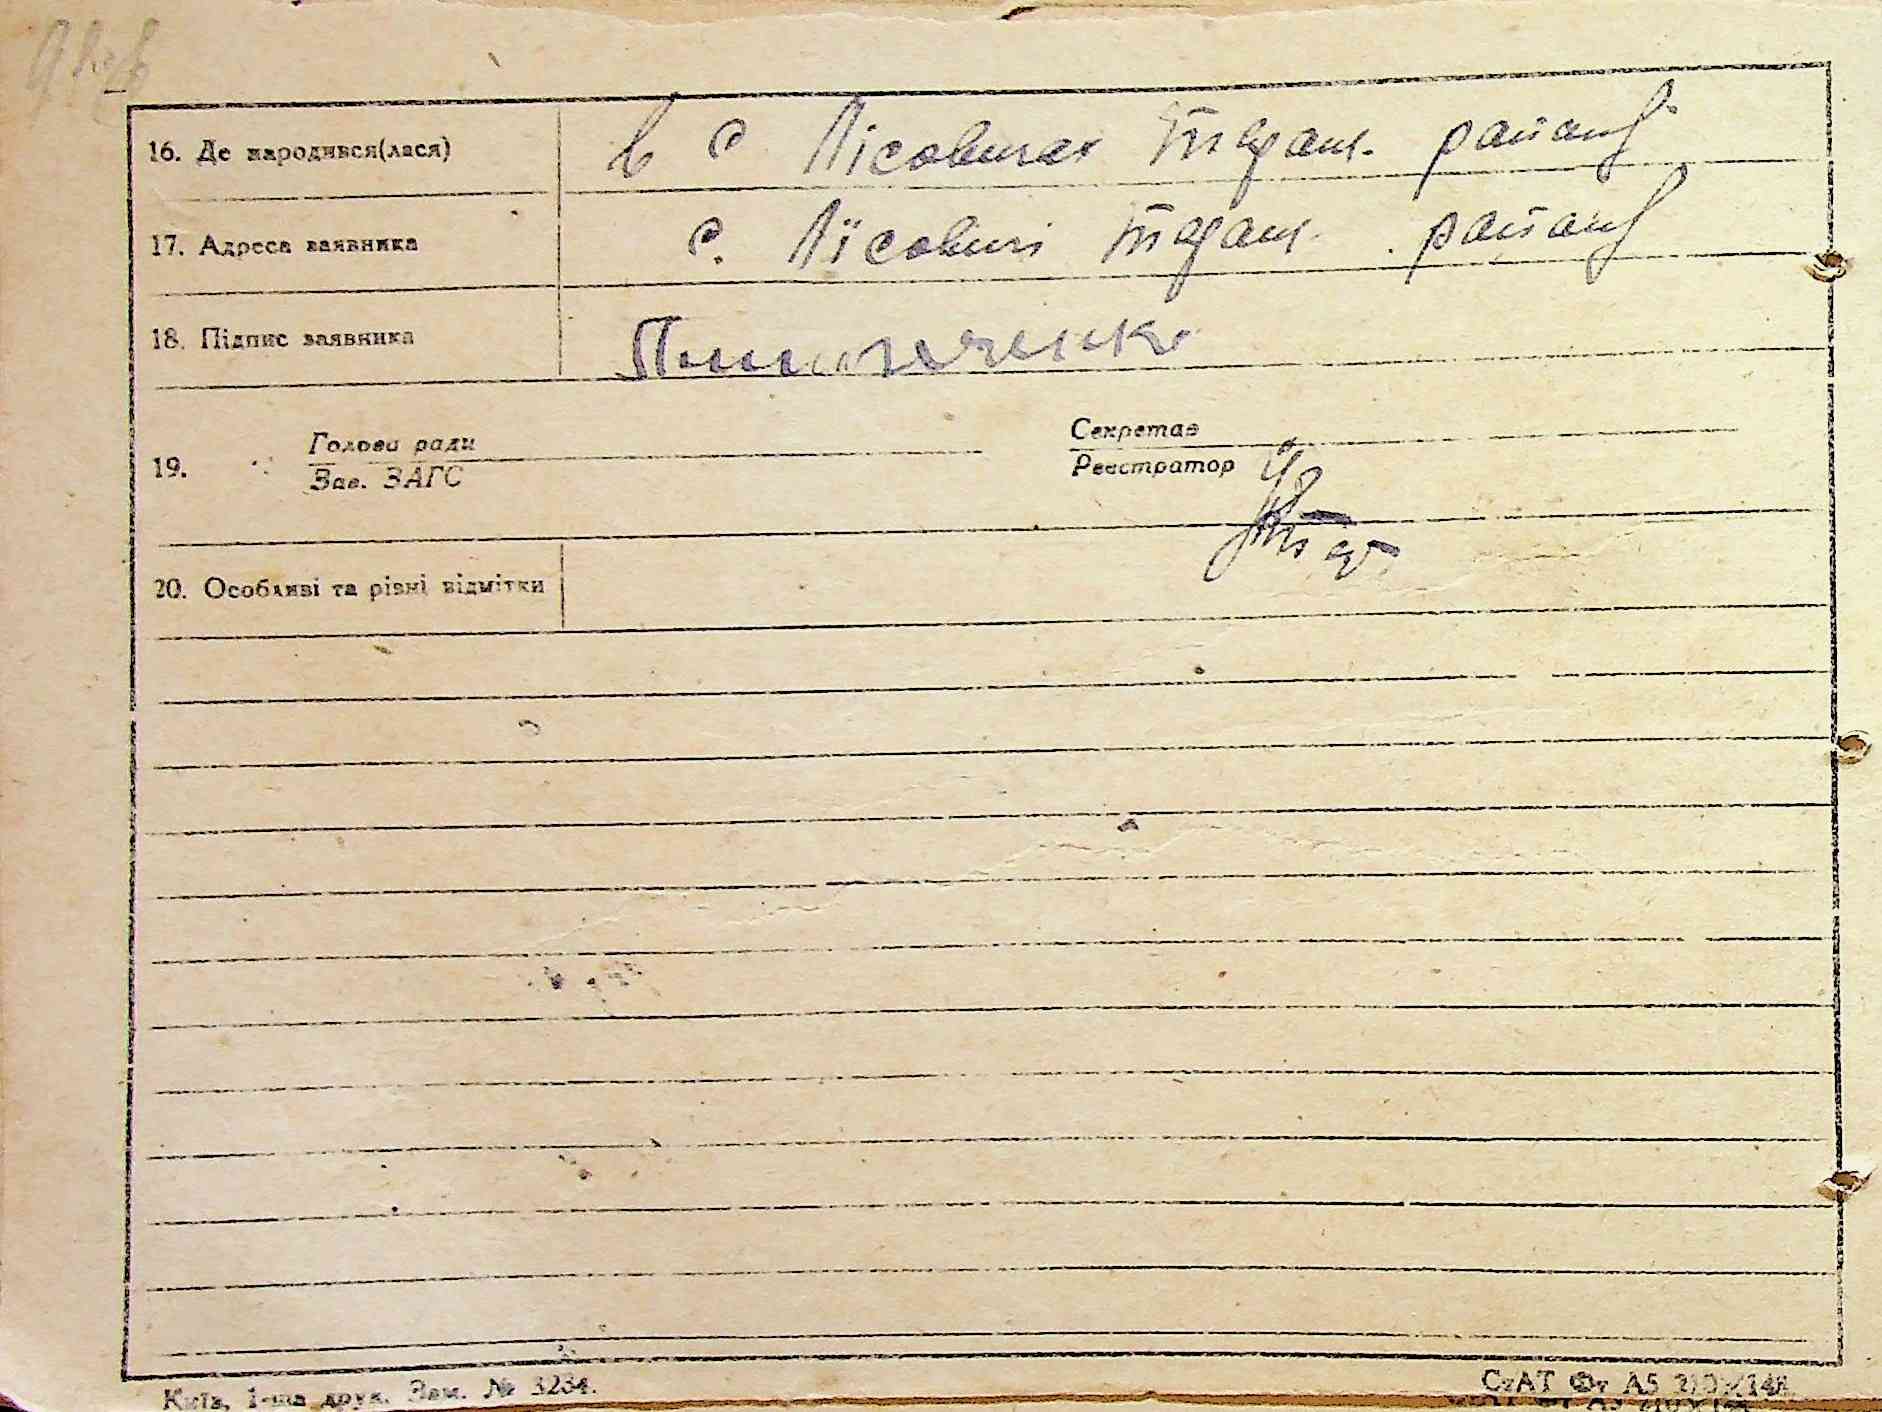 16. Де народився(лася) в с Лісовичах Таращ. району
17. Адреса заявника с. Лісовичі Таращ. району
18. Підпис заявника
19. Голова ради Секретар
Зав. ЗАГС Реєстратор
20. Особливі та різні відмітки
Київ, 1-ша друк. Зам. № 3234. СтАТ Фт А5 210×148